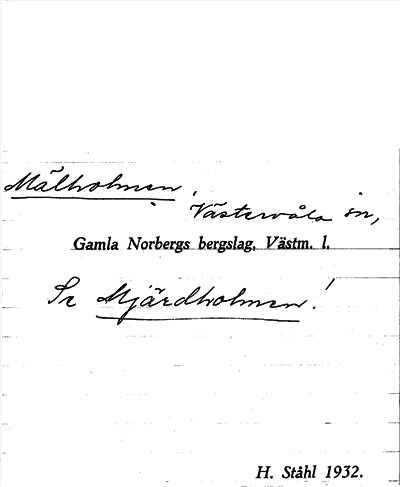 Mälholmen,
Västervåla sn,
Gamla Norbergs bergslag, Västm. l.
Se Mjärdholmen!
H. Ståhl 1932.